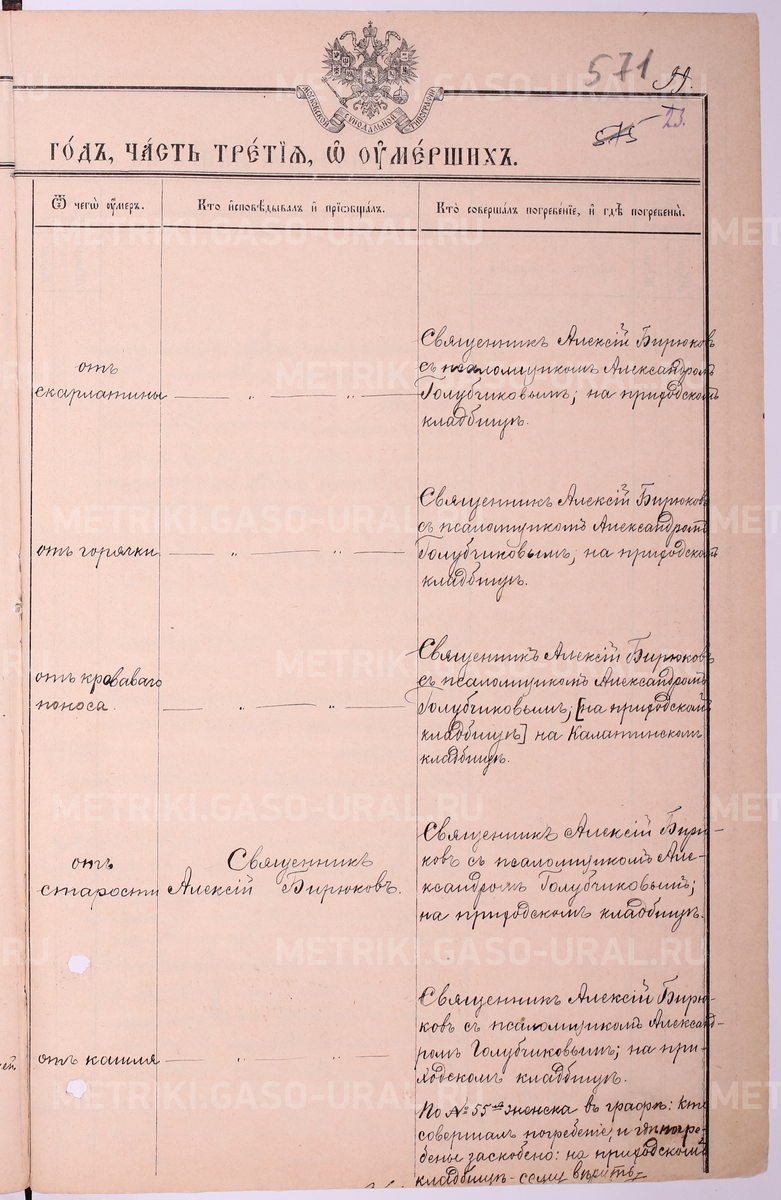 571
99.
575
23.
МОСКОВСКОЙ СѴНОДАЛЬНОЙ ТИПОГРАФІИ
ГО́ДЪ, ЧА́СТЬ ТРЕ́ТІѦ, Ѡ ОУМЕ́РШИХЪ.
Ѿ чегѡ̀ оу́меръ.
Кто̀ и҆сповѣ́дывалъ и҆ прїѡбща́лъ.
Кто̀ соверша́лъ погребе́нїе, и҆ гдѣ̀ погребены̀.
отъ
скарлатины — „ — „ —
Священникъ Алексій Бирюковъ
съ псаломщикомъ Александромъ
Голубчиковымъ; на приходскомъ
кладбищѣ.
отъ горячки — „ — „ —
Священникъ Алексій Бирюковъ
съ псаломщикомъ Александромъ
Голубчиковымъ; на приходскомъ
кладбищѣ.
отъ кроваваго
поноса. — „ — „ —
Священникъ Алексій Бирюковъ
съ псаломщикомъ Александромъ
Голубчиковымъ; [на приходскомъ
кладбищѣ] на Калатинскомъ
кладбищѣ.
отъ
старости
Священникъ
Алексій Бирюковъ.
Священникъ Алексій Бирю-
ковъ съ псаломщикомъ Але-
ксандромъ Голубчиковымъ;
на приходскомъ кладбищѣ.
отъ кашля — „ „ —
Священникъ Алексій Бирю-
ковъ съ псаломщикомъ Александ-
ромъ Голубчиковымъ; на при-
ходскомъ кладбищѣ.
По № 55му женска въ графѣ: кто
совершалъ погребеніе, и гдѣ погре-
бены заскобено: на приходскомъ
кладбищѣ - сему вѣрить -
METRIKI.GASO-URAL.RU